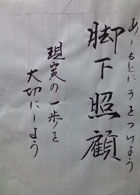 あしもとに気をつけよう
脚下照顧
現実の一歩を
大切にしよう